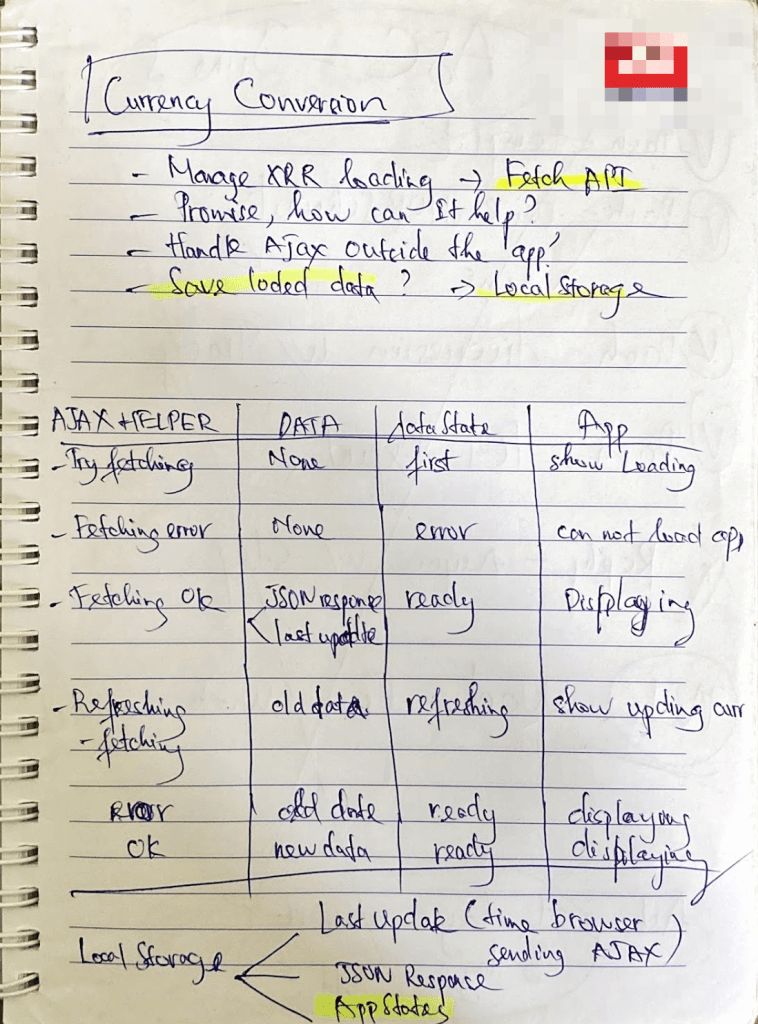 Currency Conversion
- Manage XRR loading → Fetch API
- Promise, how can It help?
- Handle AJax outside the 'app'
- Save loded data ? → Local Storage
AJAX HELPER DATA dataState App
- Try fetching None first show Loading
- Fetching error None error can not load ap
- Fetching Ok JSON response ready Displaying
last update
- Refreshing old data refreshing show upding curr
- fetching
error old date ready displaying
Ok new data ready displaying
Last Updat (time browser
sending AJAX)
Local Storage
JSON Responce
App States